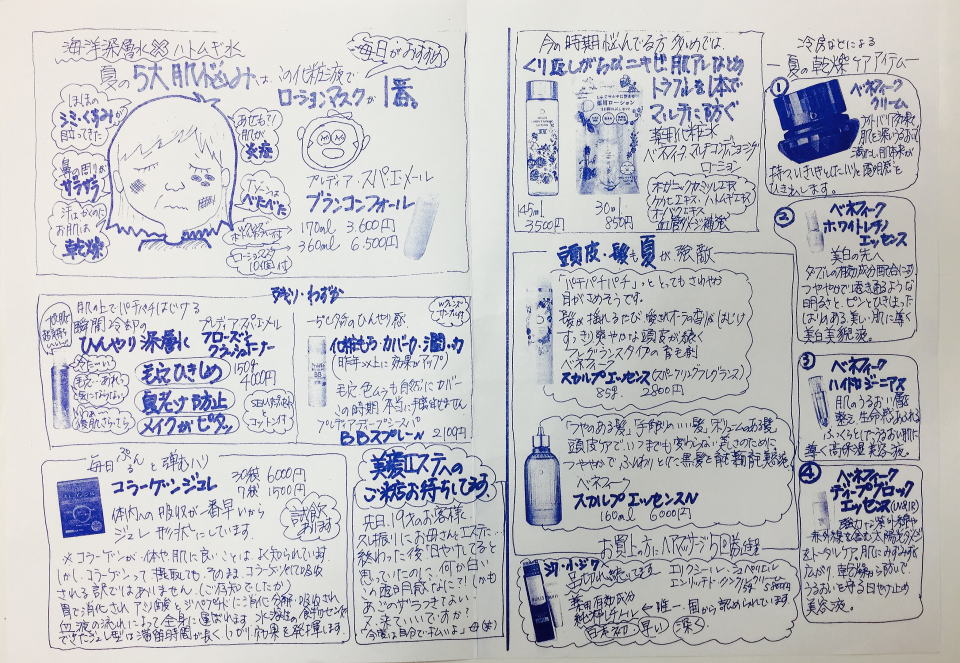 海洋深層水 ハトムギ水
毎日がおすすめ
夏の5大肌悩みは、この化粧液で
ローションマスクが1番。
ほほの
シミ・くすみが
目立ってきた
あせも?!
肌が
炎症
鼻の周りが
ザラザラ
Tゾーンは
べたべた
汗はかくのに
お肌は
乾燥
プレディア スパエメール
ブランコンフォール
170ml 3.600円
360ml 6.500円
今の時期悩んでる方多いのでは、
くり返しがちなニキビ・肌アレなどの
トラブルを1本で
マルチに防ぐ
薬用化粧水
ベネフィーク マルチコンディショニング
ローション
145ml
3500円
30ml
850円
オーガニックカミツレエキス
冷房などによる
夏の乾燥ケアアイテム
①
ベネフィーク
クリーム
②
ベネフィーク
ホワイトレチノ
エッセンス
美白の先へ
ダブルの有効成分配合に加え
つややかで透き通るような
明るさと、ピンとひきしまった
はりのある美しい肌に導く
美白美容液。
③
ベネフィーク
ハイドロジーニアス
肌のうるおい循環
整え、生命感あふれる
ふっくらとしたうるおい肌に
導く高保湿美容液。
④
ベネフィーク
ディープブロック
エッセンス(UV&IR)
うるおいを守る日やけ止め
美容液。
残り・わずか
肌の上でパチパチはじける
瞬間冷却の
ひんやり深層水
プレディアスパエメール
フローズン
クラッシュトナー
150g
4000円
毛穴ひきしめ
夏老け防止
メイクがピタッ
ひんやり感
化粧もち・カバー力・潤い力
昨年以上に効果がアップ
毛穴、色ムラも自然にカバー
この時期本当に手離せません
プレディアプティースパ
BBスプレーN 2100円
頭皮・髪も夏が強敵
「パチパチパチ」ととってもさわやか
目がさめそうです。
髪が揺れるたび愛されオーラの香りがはじけ
すっきり爽やかな頭皮が続く
フレグランスタイプの育毛剤
ベネフィーク
スカルプエッセンス(スパークリングフレグランス)
85g 2800円
「つやのある髪」「手触りのいい髪」「ボリュームのある髪」
頭皮ケアでいつまでも変わらない美しさのために
つややかでふんわりとした黒髪を育む育毛剤美容液
ベネフィーク
スカルプエッセンスN
160ml 6000円
毎日ぷるんと弾むハリ
コラーゲンジュレ
30袋 6000円
7袋 1500円
体内への吸収が一番早いから
ジュレ形状にしています。
試飲
あります
※コラーゲンが、体や肌に良いことは、よく知られています
しかし、コラーゲンって摂取しても、そのままコラーゲンとして吸収
される訳ではありません。(ご存知でしたか)
胃で消化され、アミノ酸とジペプチドに消化・分解・吸収され
血液の流れによって全身に運ばれます。
できたジュレ型は滞留時間が長くしっかり効果を発揮します。
美髪エステへの
ご来店お待ちしてます。
先日、19才のお客様、
久し振りにお母さんとエステに…
終わった後「日やけしてると
思っていたのに、何か白い
この透明感なんで?!しかも
あごのザラつきでない
又、来ていいですか?
「今度は自分で払いよ」母(笑)
お買上の方にヘアマッサージ5回無料
シワ・小ジワ
品切れ続いてます。
エリクシール シュペリエル
エンリッチド リンクルクリーム
薬用有効成分
純粋レチノール ← 唯一、国から認められています
目もと 早い 深く